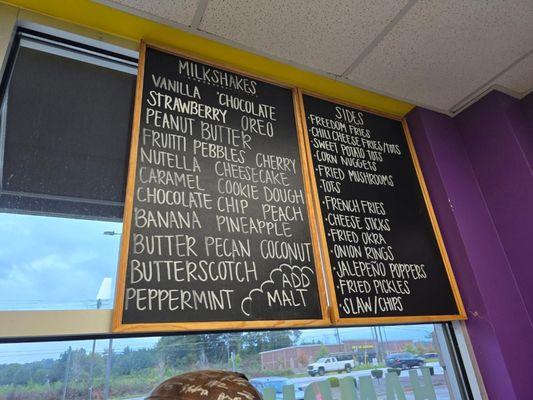 MILKSHAKES
VANILLA CHOCOLATE
STRAWBERRY OREO
PEANUT BUTTER
FRUITTI PEBBLES CHERRY
NUTELLA CHEESECAKE
CARAMEL COOKIE DOUGH
CHOCOLATE CHIP PEACH
BANANA PINEAPPLE
BUTTER PECAN COCONUT
BUTTERSCOTCH
PEPPERMINT
ADD
MALT
SIDES
·FREEDOM FRIES
·CHILI CHEESE FRIES/TOTS
·SWEET POTATO TOTS
·CORN NUGGETS
·FRIED MUSHROOMS
·TOTS
·FRENCH FRIES
·CHEESE STICKS
·FRIED OKRA
·ONION RINGS
·JALEPEÑO POPPERS
·FRIED PICKLES
·SLAW/CHIPS